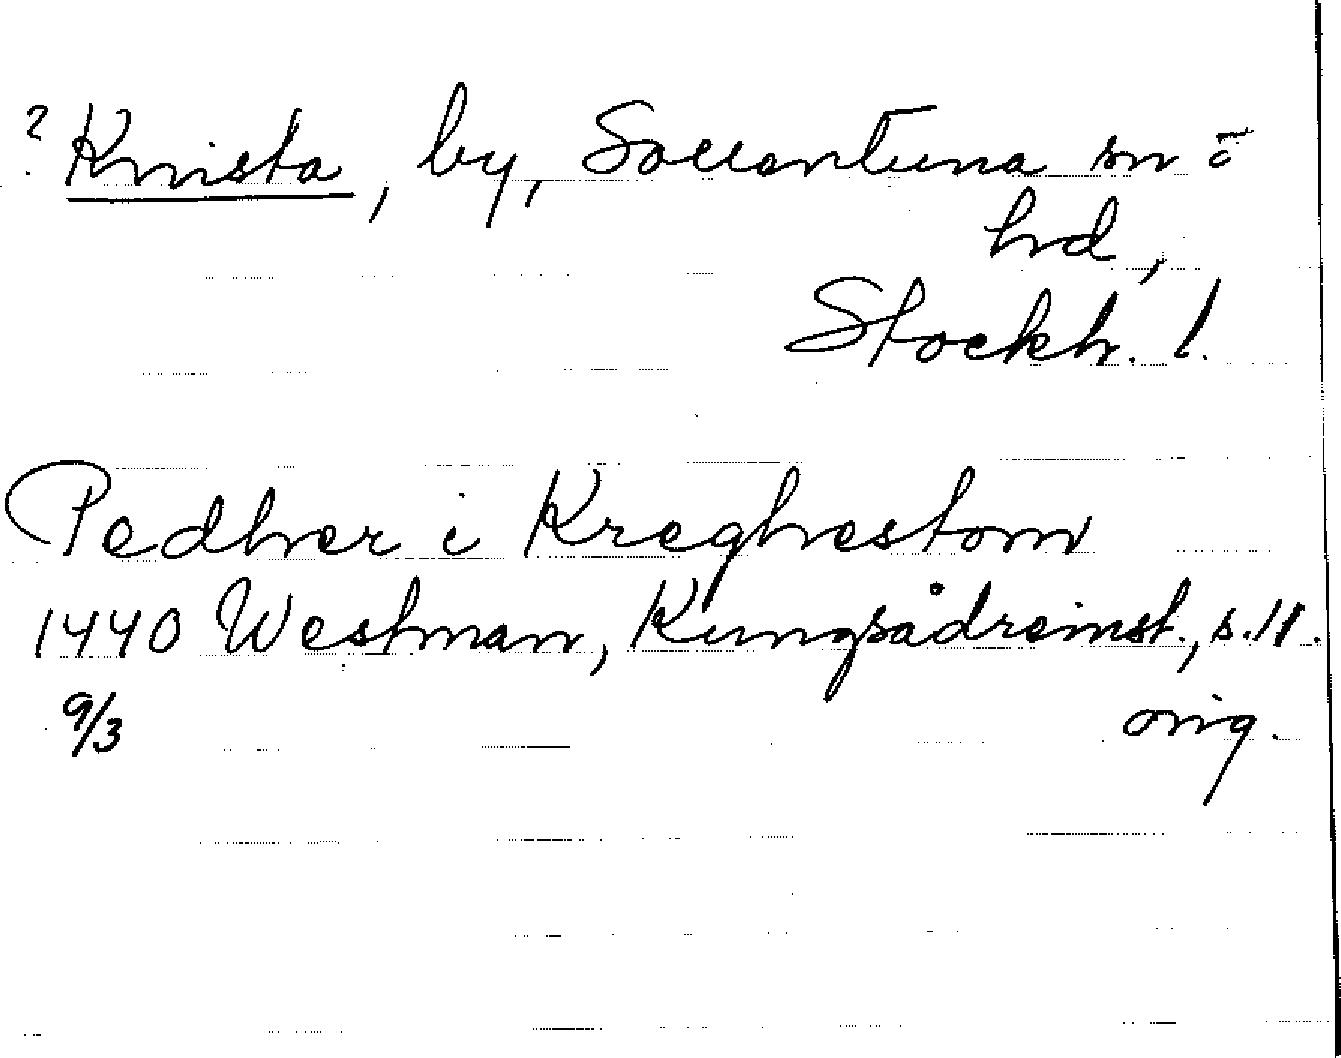 ? Knista, by, Sollentuna sn o
hd,
Stockh. l.
Pedher i Kreghestom
1440 Westman, Kungsådreinst., s. 11.
9/3 orig.